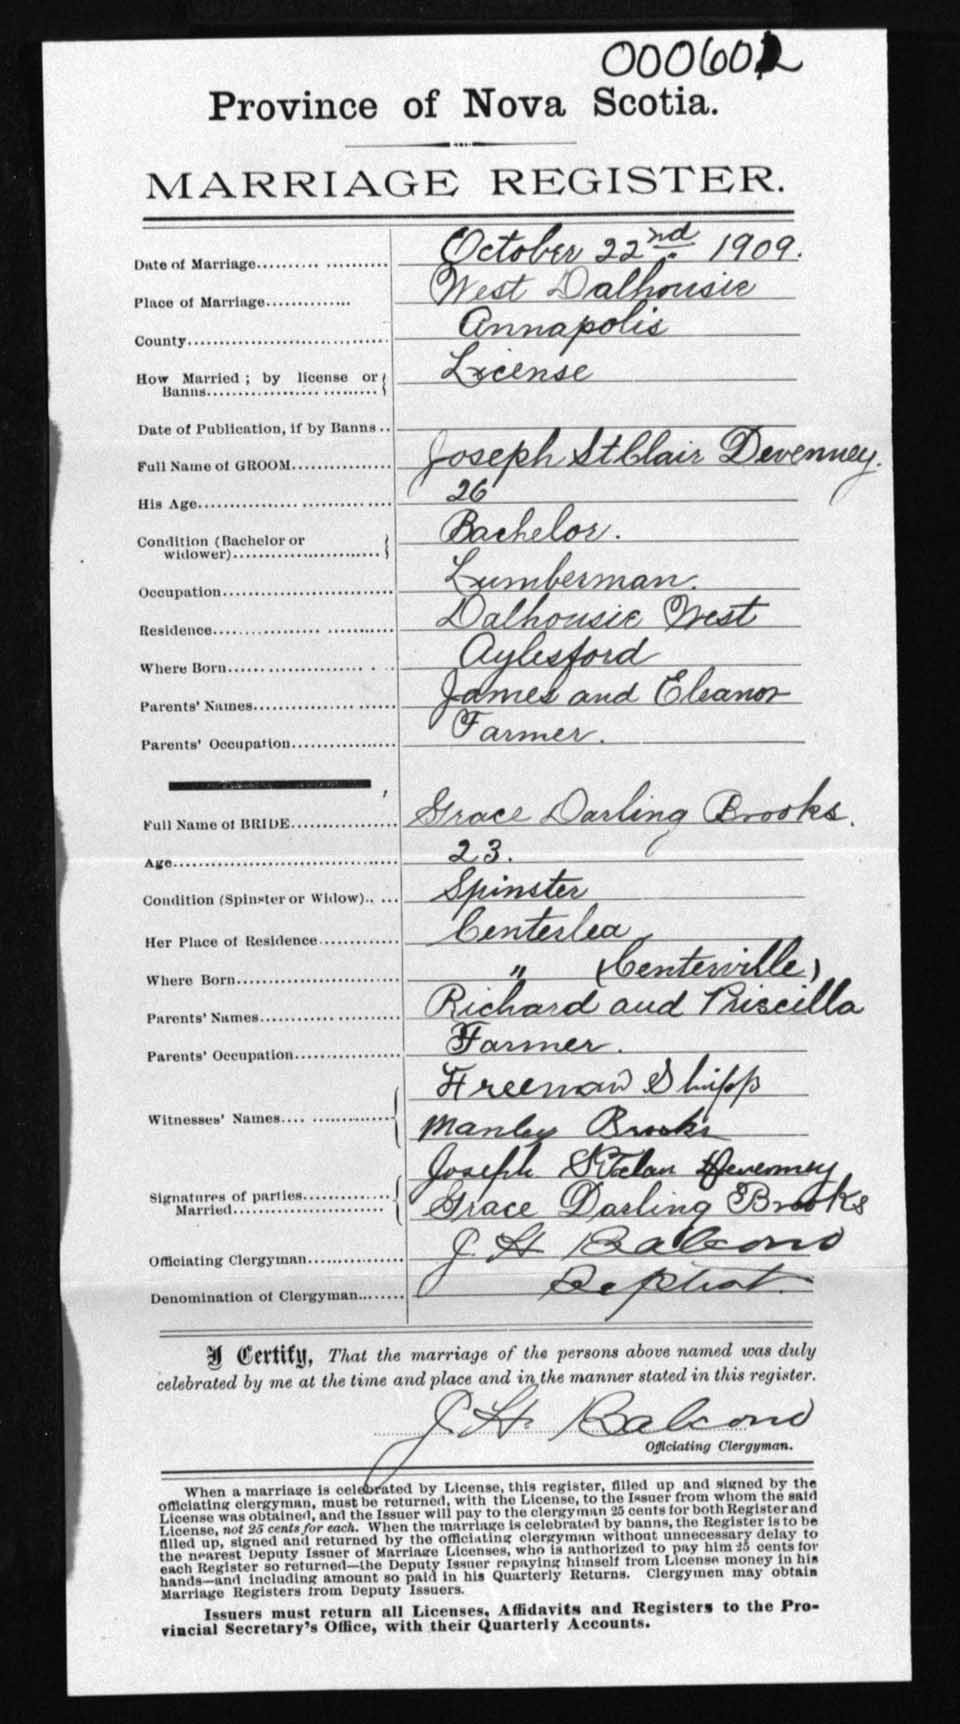 000602
Province of Nova Scotia.
MARRIAGE REGISTER.
Date of Marriage.......... ........... October 22nd. 1909.
Place of Marriage............. West Dalhousie
County................................. Annapolis
How Married ; by license or License
Banns......................................
Date of Publication, if by Banns ..
Full Name of GROOM................ Joseph St Clair Devenney.
His Age................................. 26
Condition (Bachelor or Bachelor.
widower)............................
Occupation............................. Lumberman.
Residence.................. ........... Dalhousie West
Where Born............................ Aylesford
Parents' Names....................... James and Eleanor
Parents' Occupation................. Farmer.
Full Name of BRIDE................. Grace Darling Brooks.
Age....................................... 23.
Condition (Spinster or Widow).. ... Spinster
Her Place of Residence............. Centerlea
Where Born............................ " (Centerville)
Parents' Names....................... Richard and Priscilla
Parents' Occupation................. Farmer.
Freeman Shipp
Witnesses' Names.... ...............
Manley Brooks
Joseph Devenney
Signatures of parties...............
Married............................. Grace Darling Brooks
Officiating Clergyman............... J. H. Balcom
Denomination of Clergyman........ Baptist.
I Certify, That the marriage of the persons above named was duly
celebrated by me at the time and place and in the manner stated in this register.
J. H. Balcom
Officiating Clergyman.
When a marriage is celebrated by License, this register, filled up and signed by the
officiating clergyman, must be returned, with the License, to the Issuer from whom the said
License was obtained, and the Issuer will pay to the clergyman 25 cents for both Register and
License, not 25 cents for each. When the marriage is celebrated by banns, the Register is to be
filled up, signed and returned by the officiating clergyman without unnecessary delay to
the nearest Deputy Issuer of Marriage Licenses, who is authorized to pay him 25 cents for
each Register so returned—the Deputy Issuer repaying himself from License money in his
hands—and including amount so paid in his Quarterly Returns. Clergymen may obtain
Marriage Registers from Deputy Issuers.
Issuers must return all Licenses, Affidavits and Registers to the Pro-
vincial Secretary's Office, with their Quarterly Accounts.